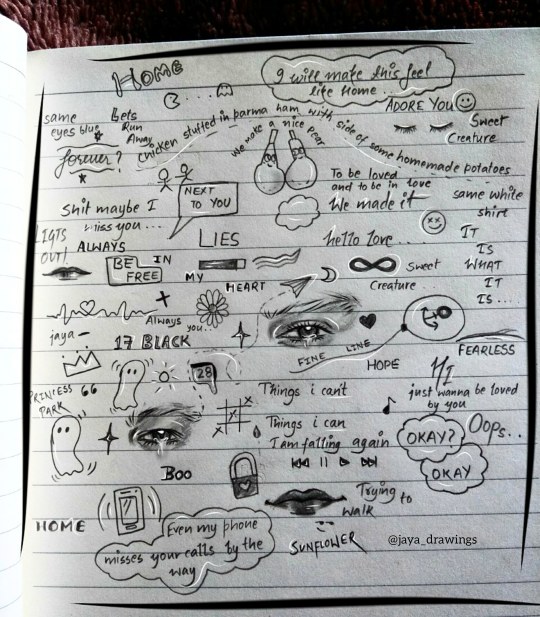 HOME
I will make this feel
like Home...
ADORE YOU
same
eyes blue
Lets
Run
Away
Sweet
Creature
forever?
chicken stuffed in parma ham with side of some homemade potatoes
We make a nice pear
NEXT
TO YOU
To be loved
and to be in love
We made it
same white
shirt
Shit maybe I
miss you...
LIGTS
OUT!
ALWAYS
LIES
hello love...
IT
IS
WHAT
IT
IS...
BE IN
FREE
MY
HEART
Sweet
Creature...
Always
you...
jaya
17 BLACK
FINE LINE
HOPE
FEARLESS
HI
PRINCESS
PARK
66
28
Things i can't
just wanna be loved
by you
Things i can
I am falling again
OKAY?
Oops..
OKAY
Boo
Trying to
walk
HOME
Even my phone
misses your calls by the
way
SUNFLOWER
@jaya_drawings